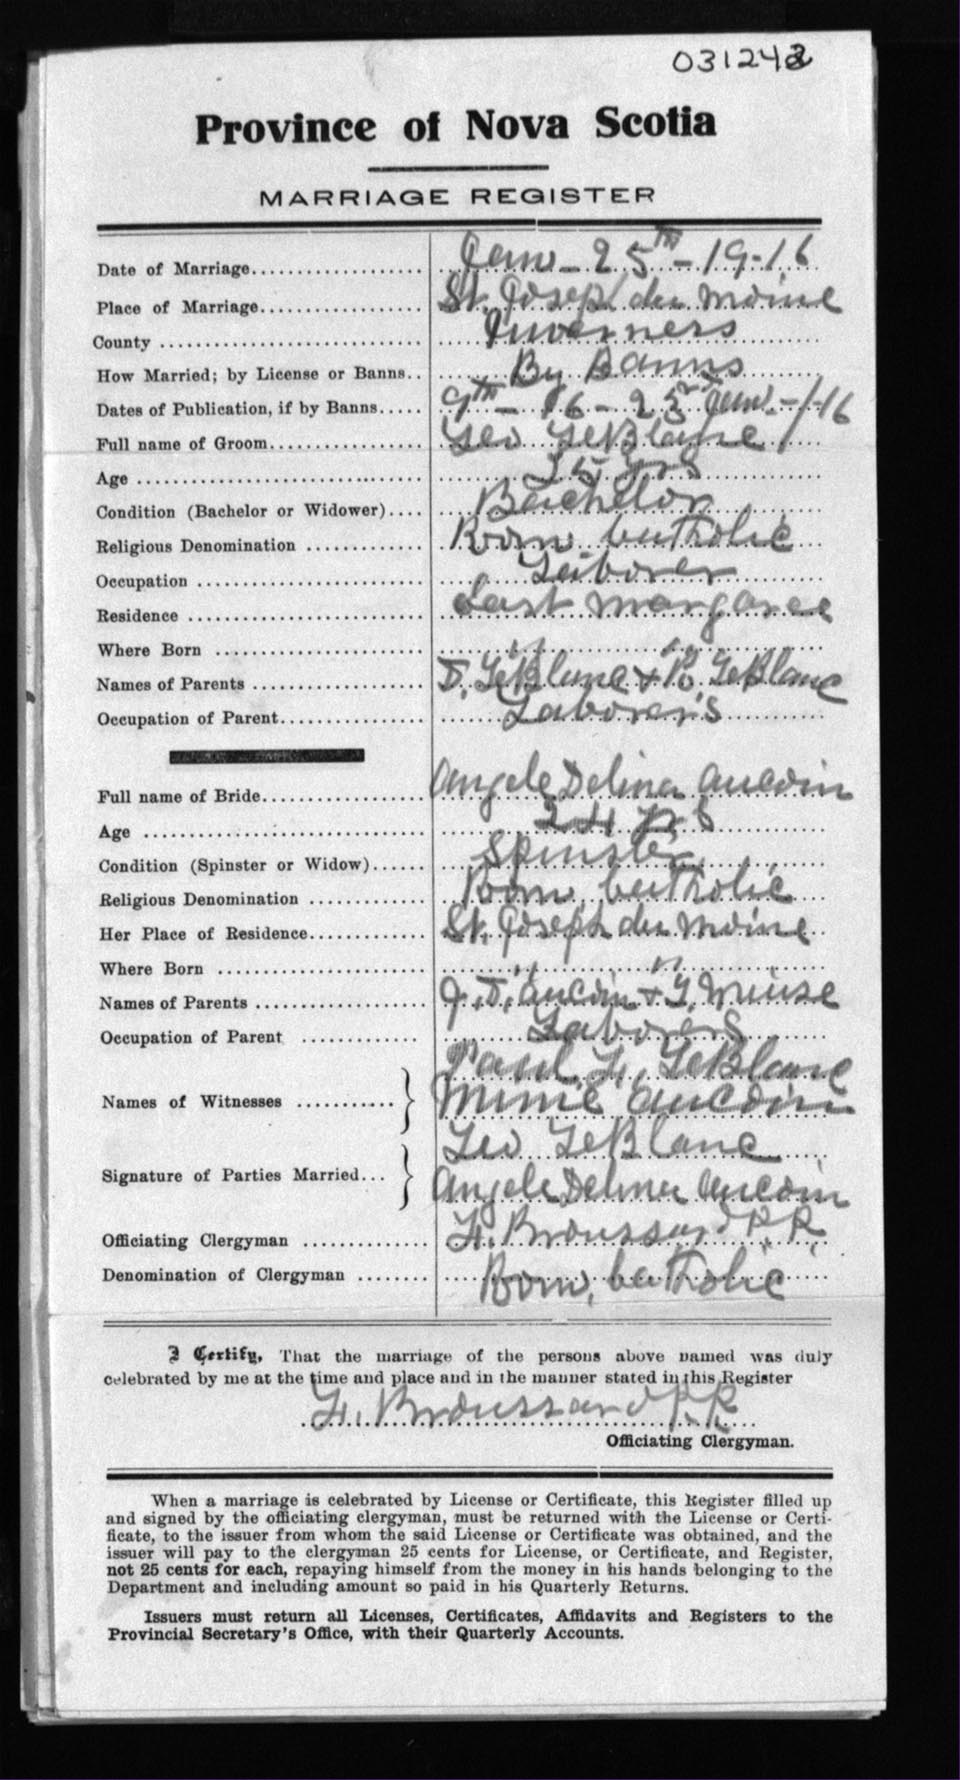 031242
Province of Nova Scotia
MARRIAGE REGISTER
Date of Marriage.................... Jan - 25TH - 19-16
Place of Marriage.................. St. Joseph du Moine
County ............................. Inverness
How Married; by License or Banns.. By Banns
Dates of Publication, if by Banns..... 9TH - 16 - 23rd Jan. - 1-16
Full name of Groom.................. Leo LeBlanc
Age ................................ 25 yrs
Condition (Bachelor or Widower).... Bachelor
Religious Denomination ............. Rom. Catholic
Occupation ......................... Laborer
Residence .......................... East Margaree
Where Born ........................ " "
Names of Parents .................. D. LeBlanc & B. LeBlanc
Occupation of Parent............... Laborer's
Full name of Bride.................. Angele Delina Aucoin
Age ................................ 24 yrs
Condition (Spinster or Widow)...... Spinster
Religious Denomination ............ Rom. Catholic
Her Place of Residence............. St. Joseph du Moine
Where Born ........................ " "
Names of Parents .................. J. D. Aucoin & L. Muise
Occupation of Parent .............. Laborers
Paul L. LeBlanc
Names of Witnesses ........... } Mimie Aucoin
Leo LeBlanc
Signature of Parties Married... } Angele Delina Aucoin
Officiating Clergyman ............. L. Broussard P.P.
Denomination of Clergyman ........ Rom. Catholic
I Certify, That the marriage of the persons above named was duly
celebrated by me at the time and place and in the manner stated in this Register
L. Broussard P.P.
Officiating Clergyman.
When a marriage is celebrated by License or Certificate, this Register filled up
and signed by the officiating clergyman, must be returned with the License or Certi-
ficate, to the issuer from whom the said License or Certificate was obtained, and the
issuer will pay to the clergyman 25 cents for License, or Certificate, and Register,
not 25 cents for each, repaying himself from the money in his hands belonging to the
Department and including amount so paid in his Quarterly Returns.
Issuers must return all Licenses, Certificates, Affidavits and Registers to the
Provincial Secretary's Office, with their Quarterly Accounts.